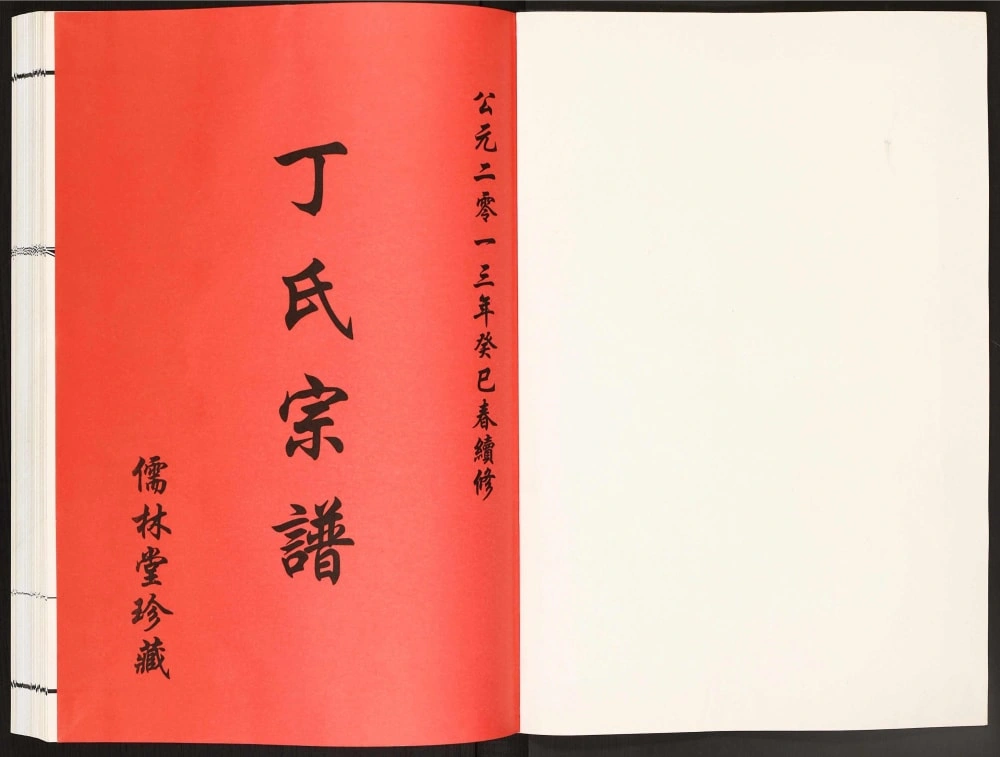 公元二零一三年癸巳春續修
丁氏宗譜
儒林堂珍藏